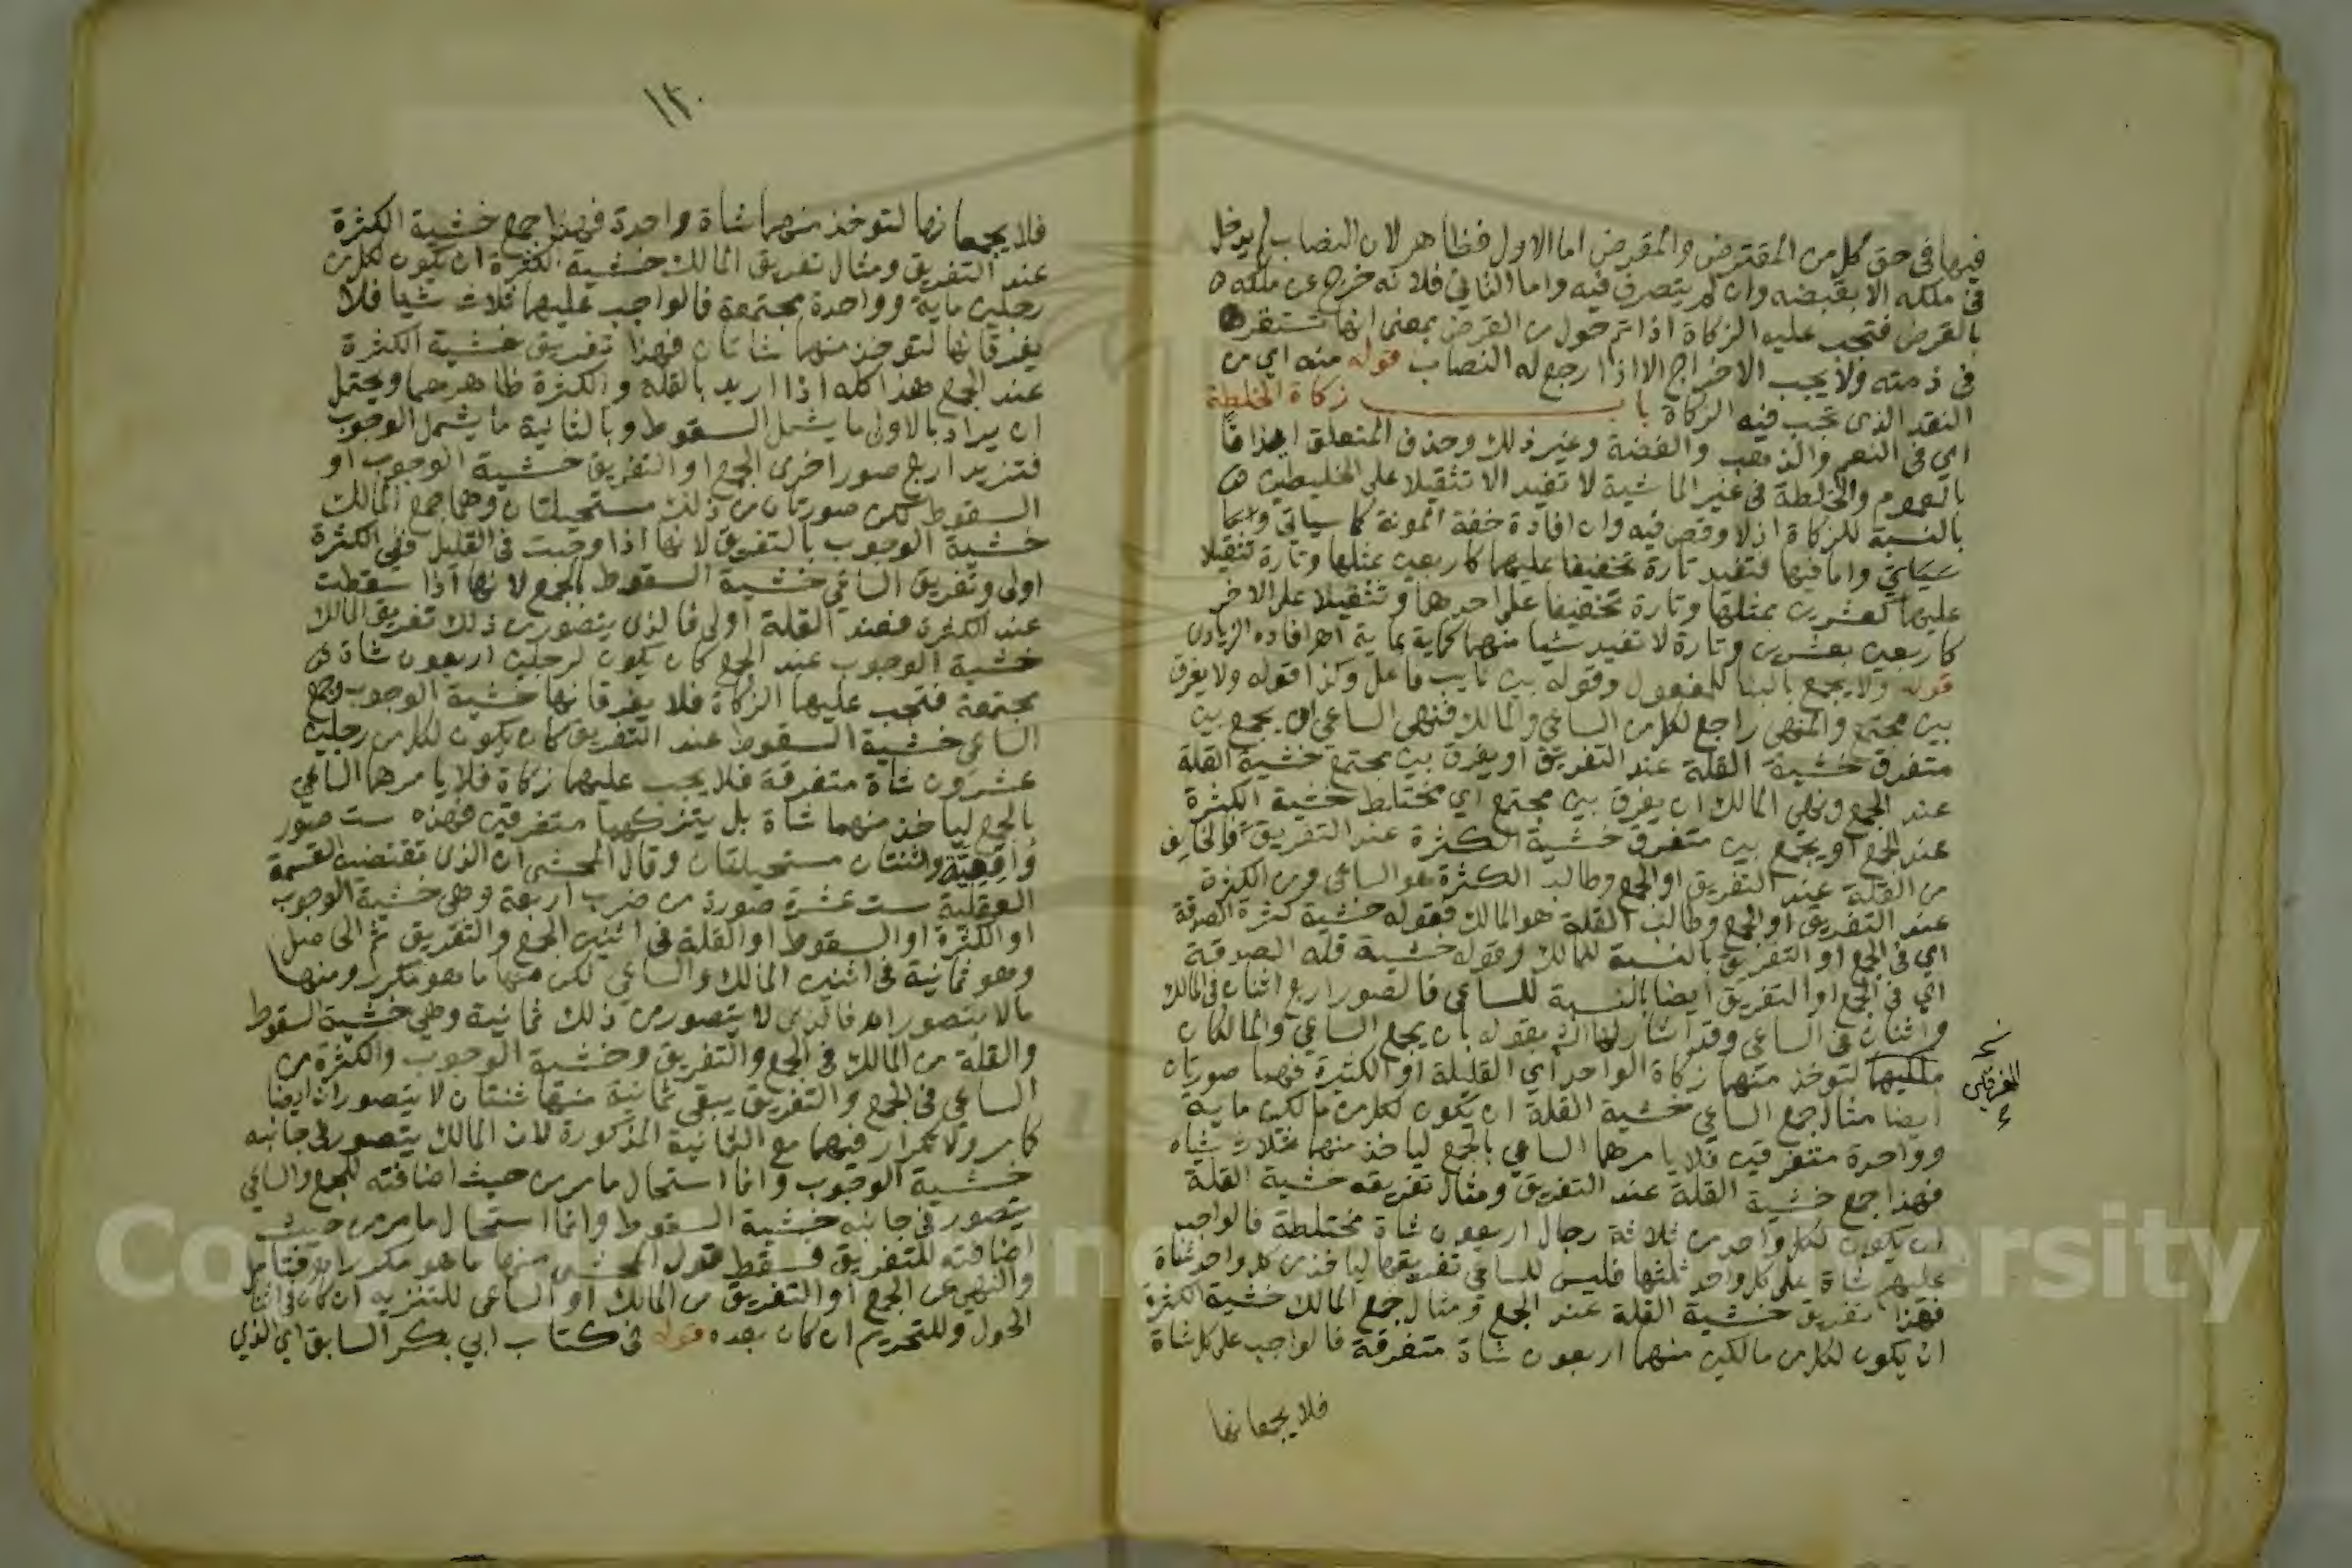 فيها في حق كل من المقترض والمقرض اما الاول فظاهر لان النصاب لم يدخل
في ملكه الا بقبضه وان لم يتصرف فيه واما الثاني فلانه خرج عن ملكه
بالقرض فتجب عليه الزكاة اذا تم حول من القرض بمعنى انها تستقر
في ذمته ولا يجب الاخراج الا اذا رجع له النصاب قوله منه اي من
النقد الذى تجب فيه الزكاة باب زكاة الخلطة
اي في النعم والذهب والفضة وغير ذلك وحذف المتعلق ايذانا
بالعموم والخلطة في غير الماشية لا تفيد الا تثقيلا على الخليطين
بالنسبة للزكاة اذ لا وقص فيه وان افادة خفة المونة كما سياتي وانما
سياتي واما فيها فتفيد تارة تخفيفا عليهما كاربعين بمثلها وتارة تثقيلا
عليهما كعشرين بمثلها وتارة تخفيفا على احدهما وتثقيلا على الاخر
كاربعين بعشرين وتارة لا تفيد شيا منهما كماية بماية اهـ افاده الزيادى
قوله ولا يجمع بالبنا للمفعول وقوله بين نايب فاعل وكذا قوله ولا يفرق
بين مجتمع والنهي راجع لكل من الساعي والمالك فنهى الساعي ان يجمع بين
متفرق خشية القلة عند التفريق او يفرق بين مجتمع خشية القلة
عند الجمع ونهي المالك ان يفرق بين مجتمع اي مختلط خشية الكثرة
عند الجمع او يجمع بين متفرق خشية الكثرة عند التفريق فالخايف
من القلة عند التفريق او الجمع وطالب الكثرة هو الساعي ومن الكثرة
عند التفريق او الجمع وطالب القلة هو المالك فقوله خشية كثرة الصدقة
اي في الجمع او التفريق بالنسبة للمالك وقوله خشية قلة الصدقة
اي في الجمع او التفريق ايضا بالنسبة للساعي فالصور اربع اثنان في المالك
واثنان في الساعي وقد اشار لها بقوله بان يجمع الساعي والمالكان
ملكيهما لتوخذ منهما زكاة الواحد اي القليلة او الكثيرة فهما صورتان
المفرقين
ايضا مثال جمع الساعي خشية القلة ان يكون لكل من مالكين ماية
وواحدة متفرقين فلا يامرهما الساعي بالجمع لياخذ منهما ثلاث شياه
فهذا جمع خشية القلة عند التفريق ومثال تفريقه خشية القلة
ان يكون لكل واحد من ثلاثة رجال اربعون شاة مختلطة فالواجب
عليهم شاة على كل واحد ثلثها فليس للساعي تفريقها لياخذ من كل واحد شاة
فهذا تفريق خشية القلة عند الجمع ومثال جمع المالك خشية الكثرة
ان يكون لكل من مالكين منهما اربعون شاة متفرقة فالواجب على كل شاة
فلا يجمعانها
١٣٠
فلا يجمعانها لتوخذ منهما شاة واحدة فهذا جمع خشية الكثرة
عند التفريق ومثال تفريق المالك خشية الكثرة ان يكون لكل من
رجلين ماية وواحدة مجتمعة فالواجب عليهما ثلاث شيا فلا
يفرقانها لتوخذ منهما شاتان فهذا تفريق خشية الكثرة
عند الجمع هذا كله اذا اريد بالقلة والكثرة ظاهرهما ويحتمل
ان يراد بالاولى ما يشمل السقوط وبالثانية ما يشمل الوجوب
فتزيد اربع صور اخرى الجمع او التفريق خشية الوجوب او
السقوط لكن صورتان من ذلك مستحيلتان وهما جمع المالك
خشية الوجوب بالتفريق لانها اذا وجبت في القليل ففي الكثرة
اولى وتفريق الساعي خشية السقوط بالجمع لانها اذا سقطت
عند الكثرة فعند القلة اولى فالذى يتصور من ذلك تفريق المالك
خشية الوجوب عند الجمع كان يكون لرجلين اربعون شاة
مجتمعة فتجب عليهما الزكاة فلا يفرقانها خشية الوجوب وجمع
الساعي خشية السقوط عند التفريق كان يكون لكل من رجلين
عشرون شاة متفرقة فلا يجب عليهما زكاة فلا يامرهما الساعي
بالجمع لياخذ منهما شاة بل يتركهما متفرقين فهذه ست صور
واقعية واثنتان مستحيلتان وقال المحشى ان الذى تقتضيه القسمة
العقلية ست عشرة صورة من ضرب اربعة وهي خشية الوجوب
او الكثرة او السقوط او القلة في اثنين الجمع والتفريق ثم الحاصل
وهو ثمانية في اثنين المالك والساعي لكن منها ما هو مكرر ومنها
مالا يتصور اهـ فالذى لا يتصور من ذلك ثمانية وهي خشية السقوط
والقلة من المالك في الجمع والتفريق وخشية الوجوب والكثرة من
الساعي في الجمع والتفريق يبقى ثمانية منها ثنتان لا يتصوران ايضا
كما مر ولا تكرار فيهما مع الثمانية المذكورة لان المالك يتصور في جانبه
خشية الوجوب وانما استحال ما مر من حيث اضافته للجمع والساعي
يتصور في جانبه خشية السقوط وانما استحال ما مر من حيث
اضافته للتفريق فسقط قول المحشى منها ما هو مكرر اهـ فتامل
والنهي عن الجمع او التفريق من المالك او الساعي للتنزيه ان كان في اثنا
الحول وللتحريم ان كان بعده قوله في كتاب ابي بكر السابق اي الذي